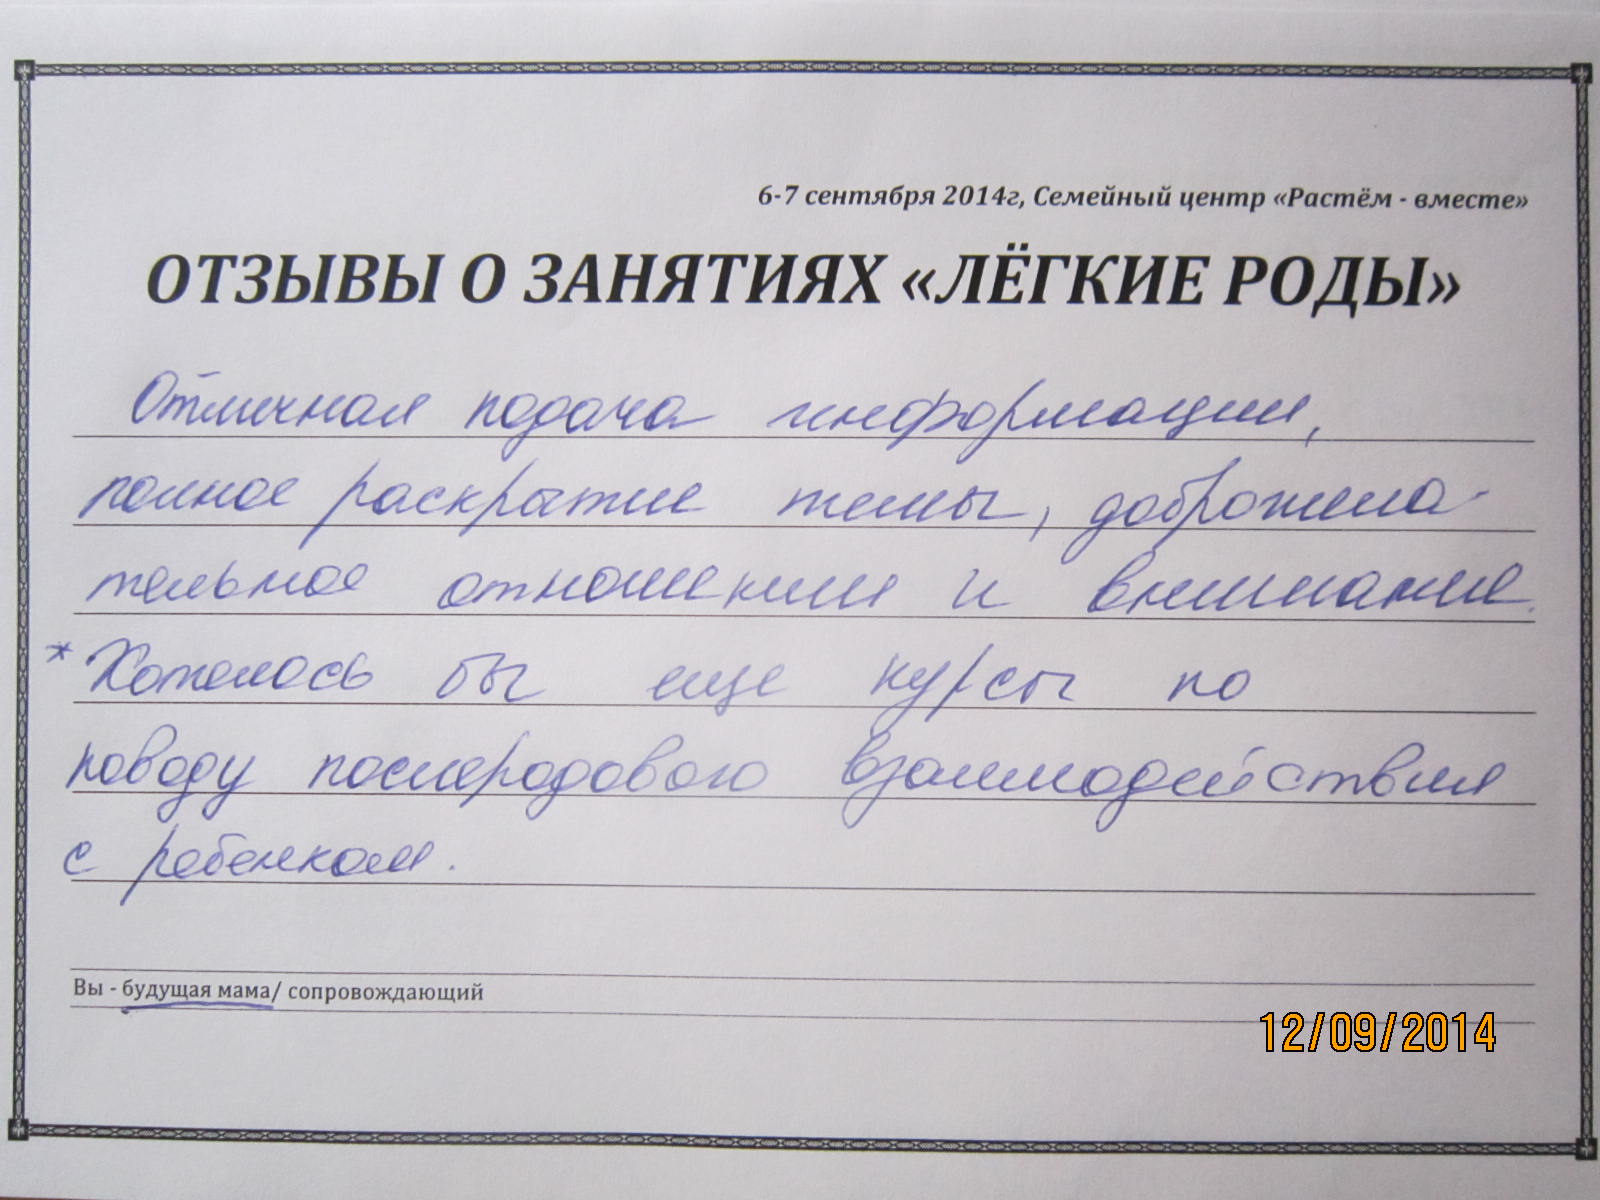 6-7 сентября 2014г, Семейный центр «Растём - вместе»
ОТЗЫВЫ О ЗАНЯТИЯХ «ЛЁГКИЕ РОДЫ»
Отличная подача информации,
полное раскрытие темы, доброжела-
тельное отношении и внимание.
* Хотелось бы еще курсы по
поводу послеродового взаимодействия
с ребенком.
Вы - будущая мама/ сопровождающий
12/09/2014